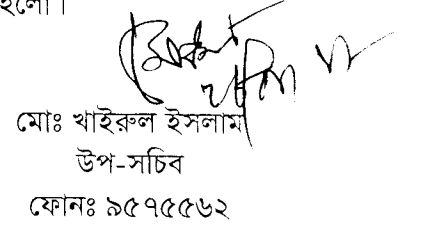 হলো।
মোঃ খাইরুল ইসলাম
উপ-সচিব
ফোনঃ ৯৫৭৫৫৬২